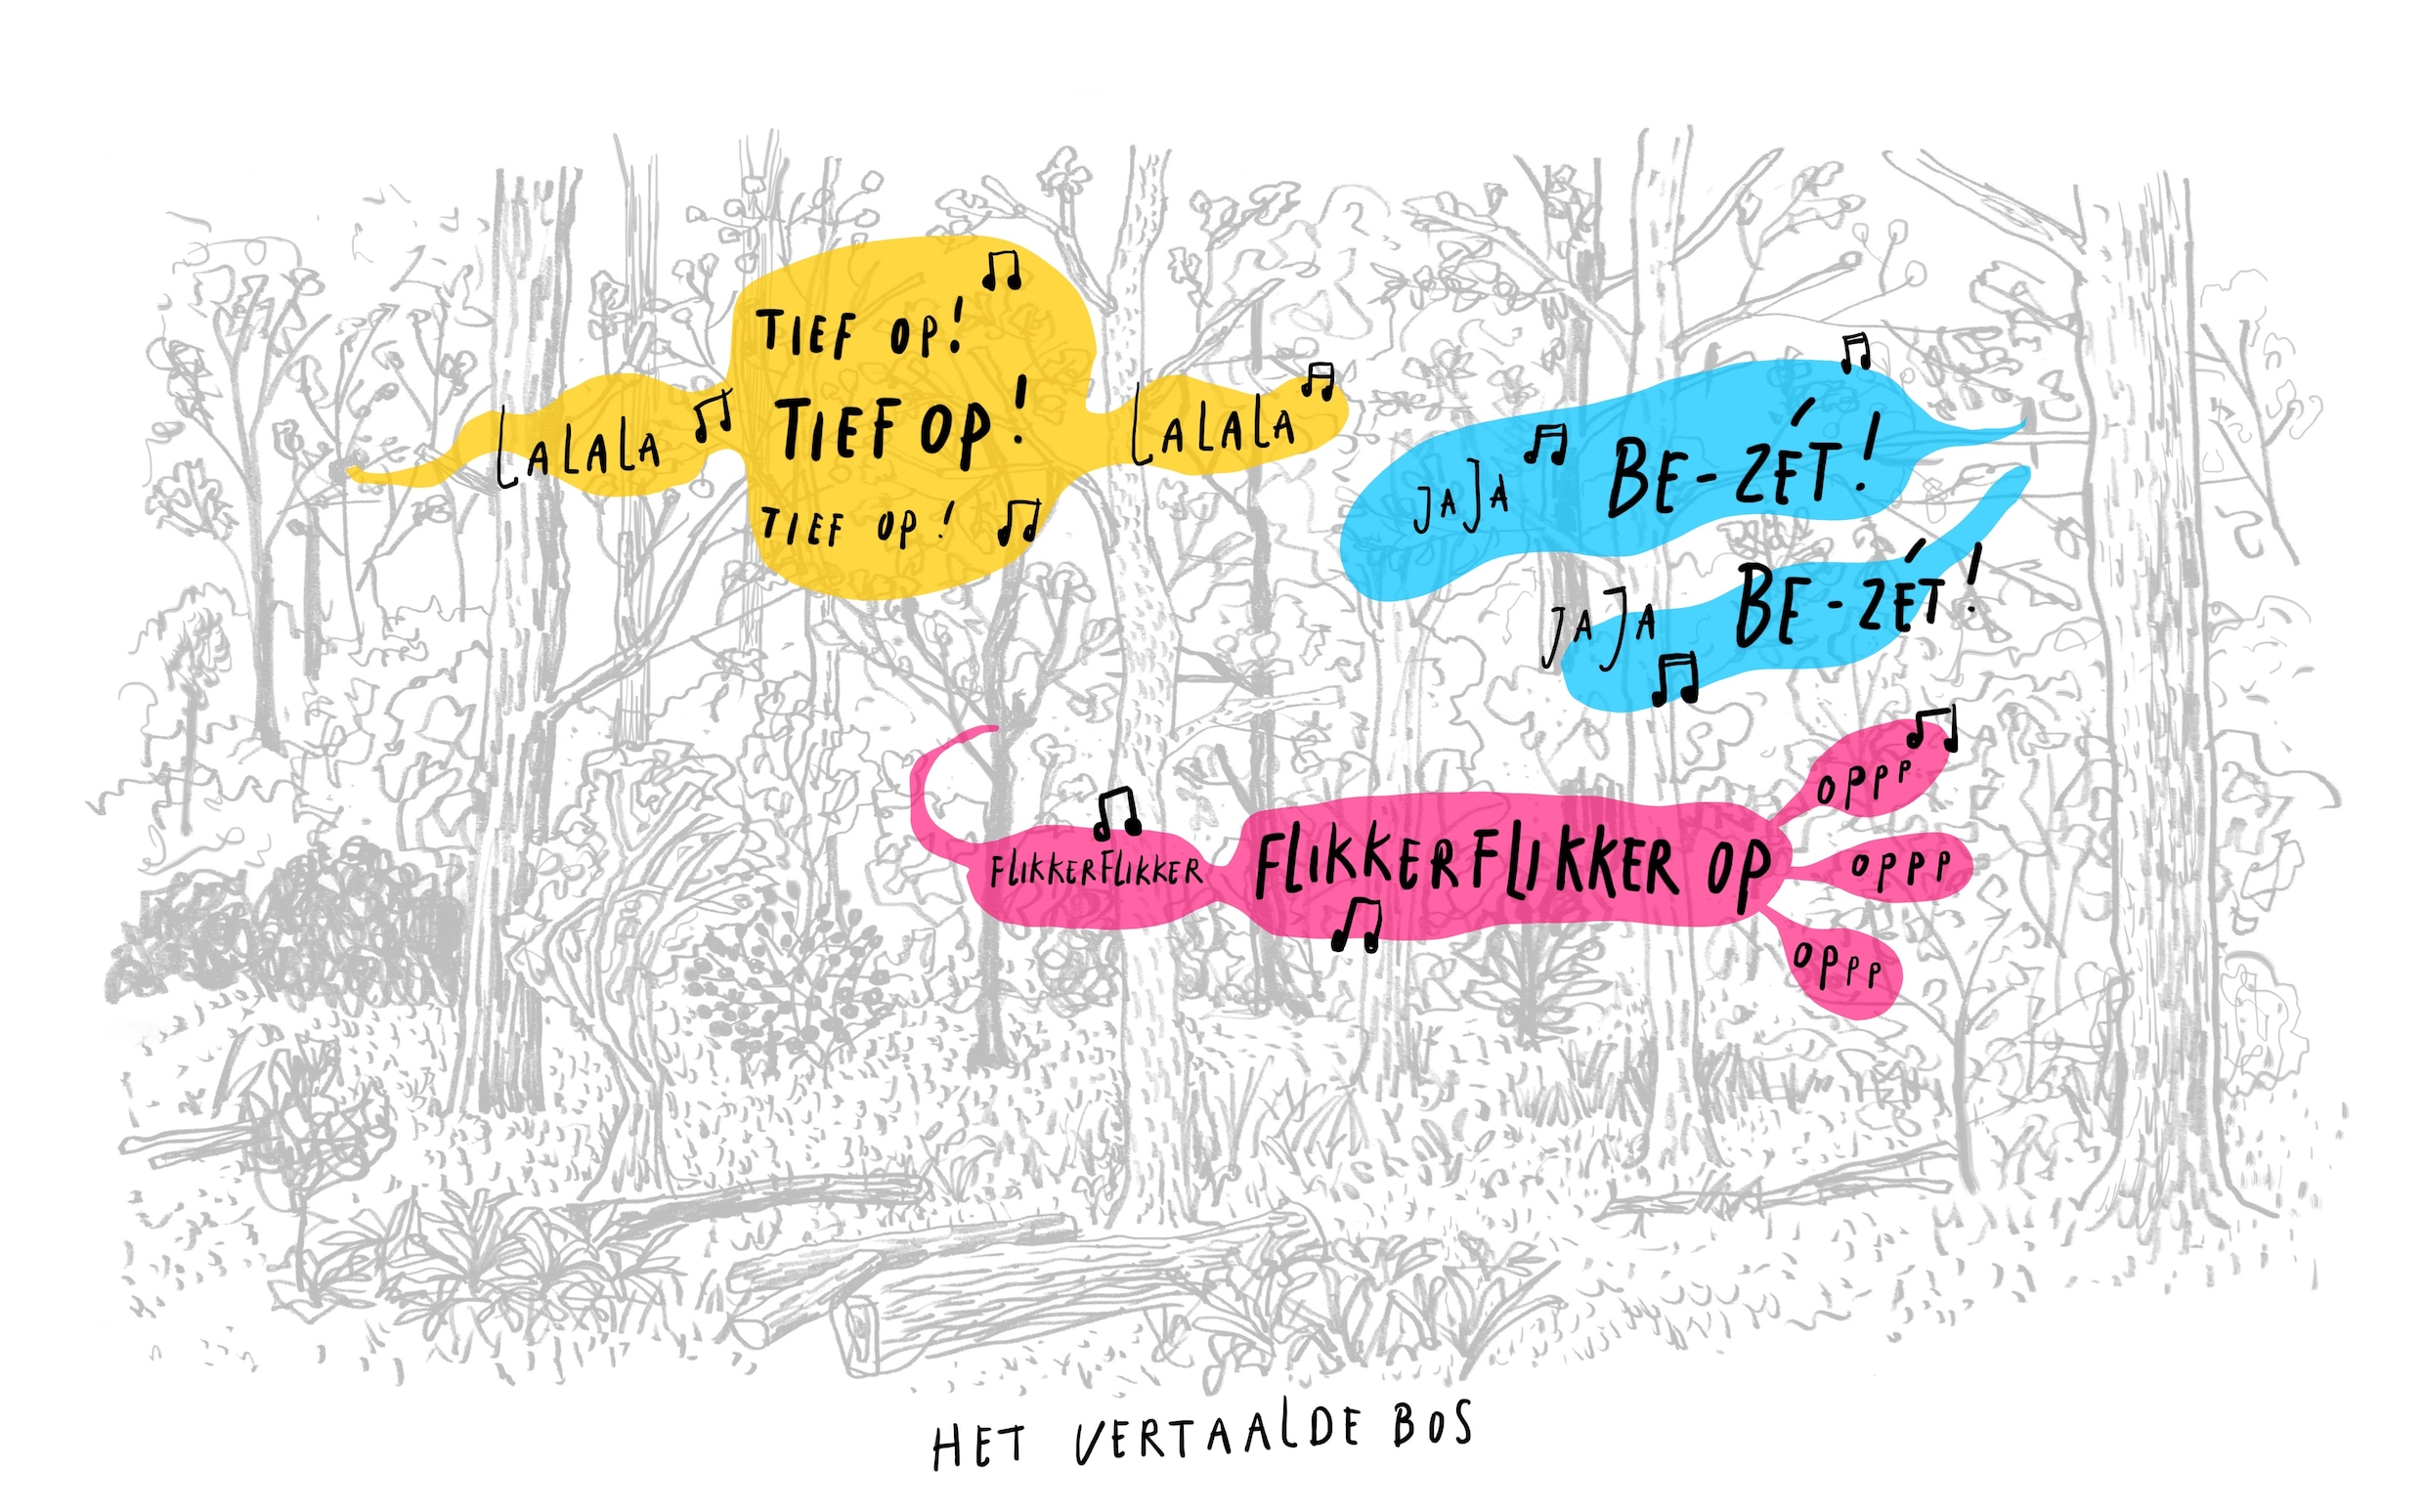 TIEF OP!
LALALA
TIEF OP!
LALALA
TIEF OP!
JAJA BE-ZÉT!
JAJA BE-ZÉT!
FLIKKERFLIKKER FLIKKERFLIKKER OP
OPPP
OPPP
OPPP
HET VERTAALDE BOS